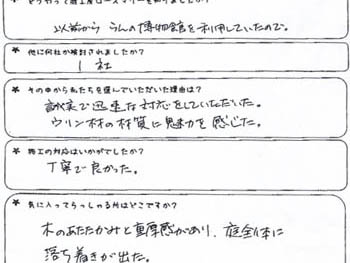 以前から うんの博物館を利用していたので。
* 他に何社か検討されましたか?
1 社
* その中から私たちを選んでいただいた理由は?
誠実で迅速な対応をしていただいた。
ウリン材の材質に魅力を感じた。
* 施工の対応はいかがでしたか?
丁寧で良かった。
* 気に入ってらっしゃる所はどこですか?
木のあたたかみと重厚感があり、庭全体に
落ち着きが出た。